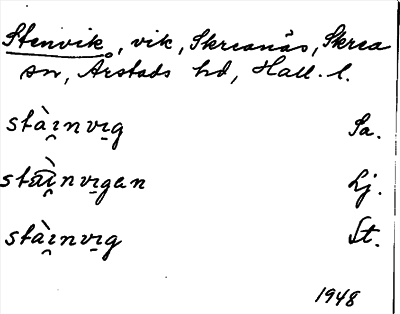 Stenvik, vik, Skreanäs, Skrea
sn, Årstads hd, Hall. l.
stà̀i̯nvi̱g Sa.
stài̯nvi̱gan Lj.
stài̯nvi̱g St.
1948